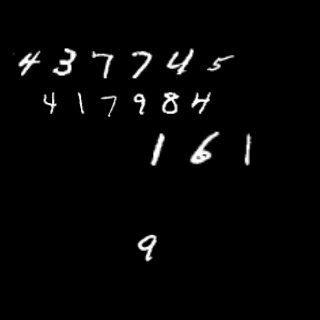 4 3 7 7 4 5
4 1 7 9 8 4
1 6 1
9